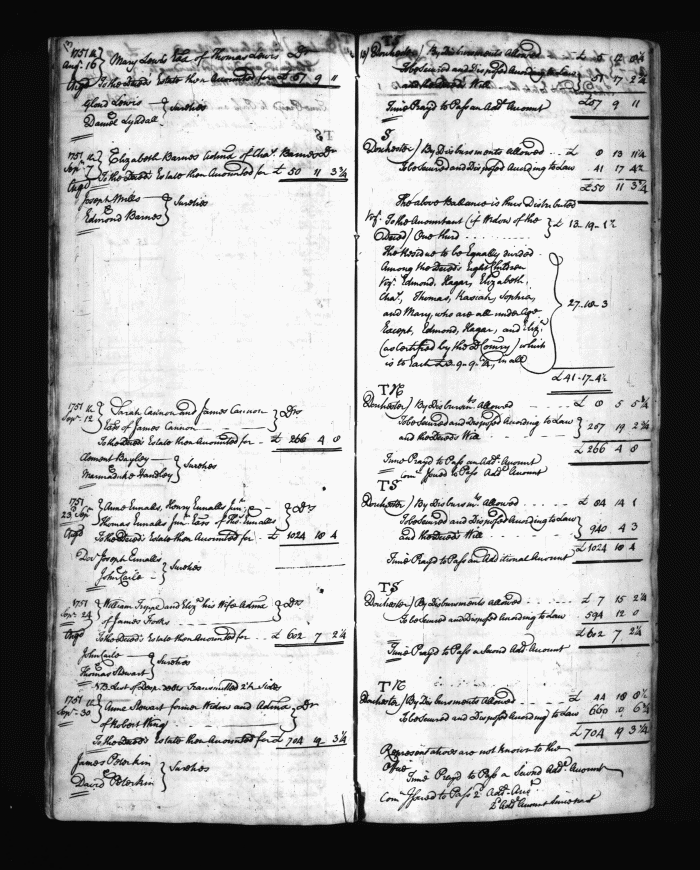 1751
Augt. 16 Mary Lewis Exx of Thomas Lewis Dr
To the Deceds Estate then Accounted for £ 57 9 11
Gland Lewis
Sureties
Daniel
1751
Sepr. 7 Elizabeth Barnes Admx of Chas. Barnes Dr
To the Deceds Estate then Accounted for £ 50 11 3¾
Joseph
Sureties
Edmond Barnes
1751
Sepr. 12 Sarah Cannon and James Cannon Drs
Exrs of James Cannon
To the Deceds Estate then Accounted for £ 266 4 8
Clement Bayley
Sureties
Marmaduke Handley
1751
23d Sepr Anne Ennalls, Henry Ennalls Junr. Drs
Thomas Ennalls Junr Exrs of Thos. Ennalls
To the Deceds Estate then Accounted for £ 1024 18 4
Joseph Ennalls
Sureties
John
1751
Sepr. 24 William Trippe and Eliza his Wife Admx Drs
of James
To the Deceds Estate then Accounted for £ 602 7 2¼
John
Sureties
Thomas Stewart
NB List of Transmitted
1751
Sepr. 30 Anne Stewart former Widow and Admx Dr
of Robert Wing
To the Deceds Estate then Accounted for £ 704 19 3¼
James Peterkin
Sureties
David Peterkin
TS
Dorchester / By Disbursments Allowed £ 5 12
To be Secured and Disposed According to Law
and the Deceds Will 51 17 2¾
Time Prayd to Pass an Addl Amount
£57 9 11
S
Dorchester / By Disbursments Allowed £ 8 13 11¼
To be Secured and Disposed According to Law 41 17 4½
£50 11 3¾
The above Ballance is thus Distributed
Vizt. To the Accountant (of Widow of the
Deced) One third £ 13-19-1½
The Residue to be Equally divided
Among the Deceds Eight Children
Vizt. Edmond, Hagar, Elizabeth,
Chas., Thomas, Keziah, Sophia,
and Mary, who are all under Age
Except, Edmond, Hagar, and Eliza.
(as Certified by the D Comry) which
is to Each £3-9-9¼, in all
27-18-3
£41-17-4½
TN
Dorchester / By Disbursmts Allowed £ 8 5 5¼
To be Secured and Disposed According to Law
and the Deceds Will 257 19 2¾
£266 4 8
Time Prayd to Pass an Addl. Amount
Com Issued to Pass Addl Amount
TS
Dorchester / By Disbursmts Allowed £ 84 14 1
To be Secured and Disposed According to Law
and the Deceds Will 940 4 3
£1024 18 4
Time Prayd to Pass an Additional Amount
TS
Dorchester / By Disbursments Allowed £ 7 15 2¼
To be Secured and Disposed According to Law 594 12 0
£602 7 2¼
Time Prayd to Pass a Second Addl Amount
TN
Dorchester / By Disbursments Allowed £ 44 18
To be Secured and Disposed According to Law 660 0
£704 19 3¼
Represent atives are not known to the
Office
Time Prayd to Pass a Second Addl Amount
Com Issued to Pass 2d. Addl.
Addl Amount